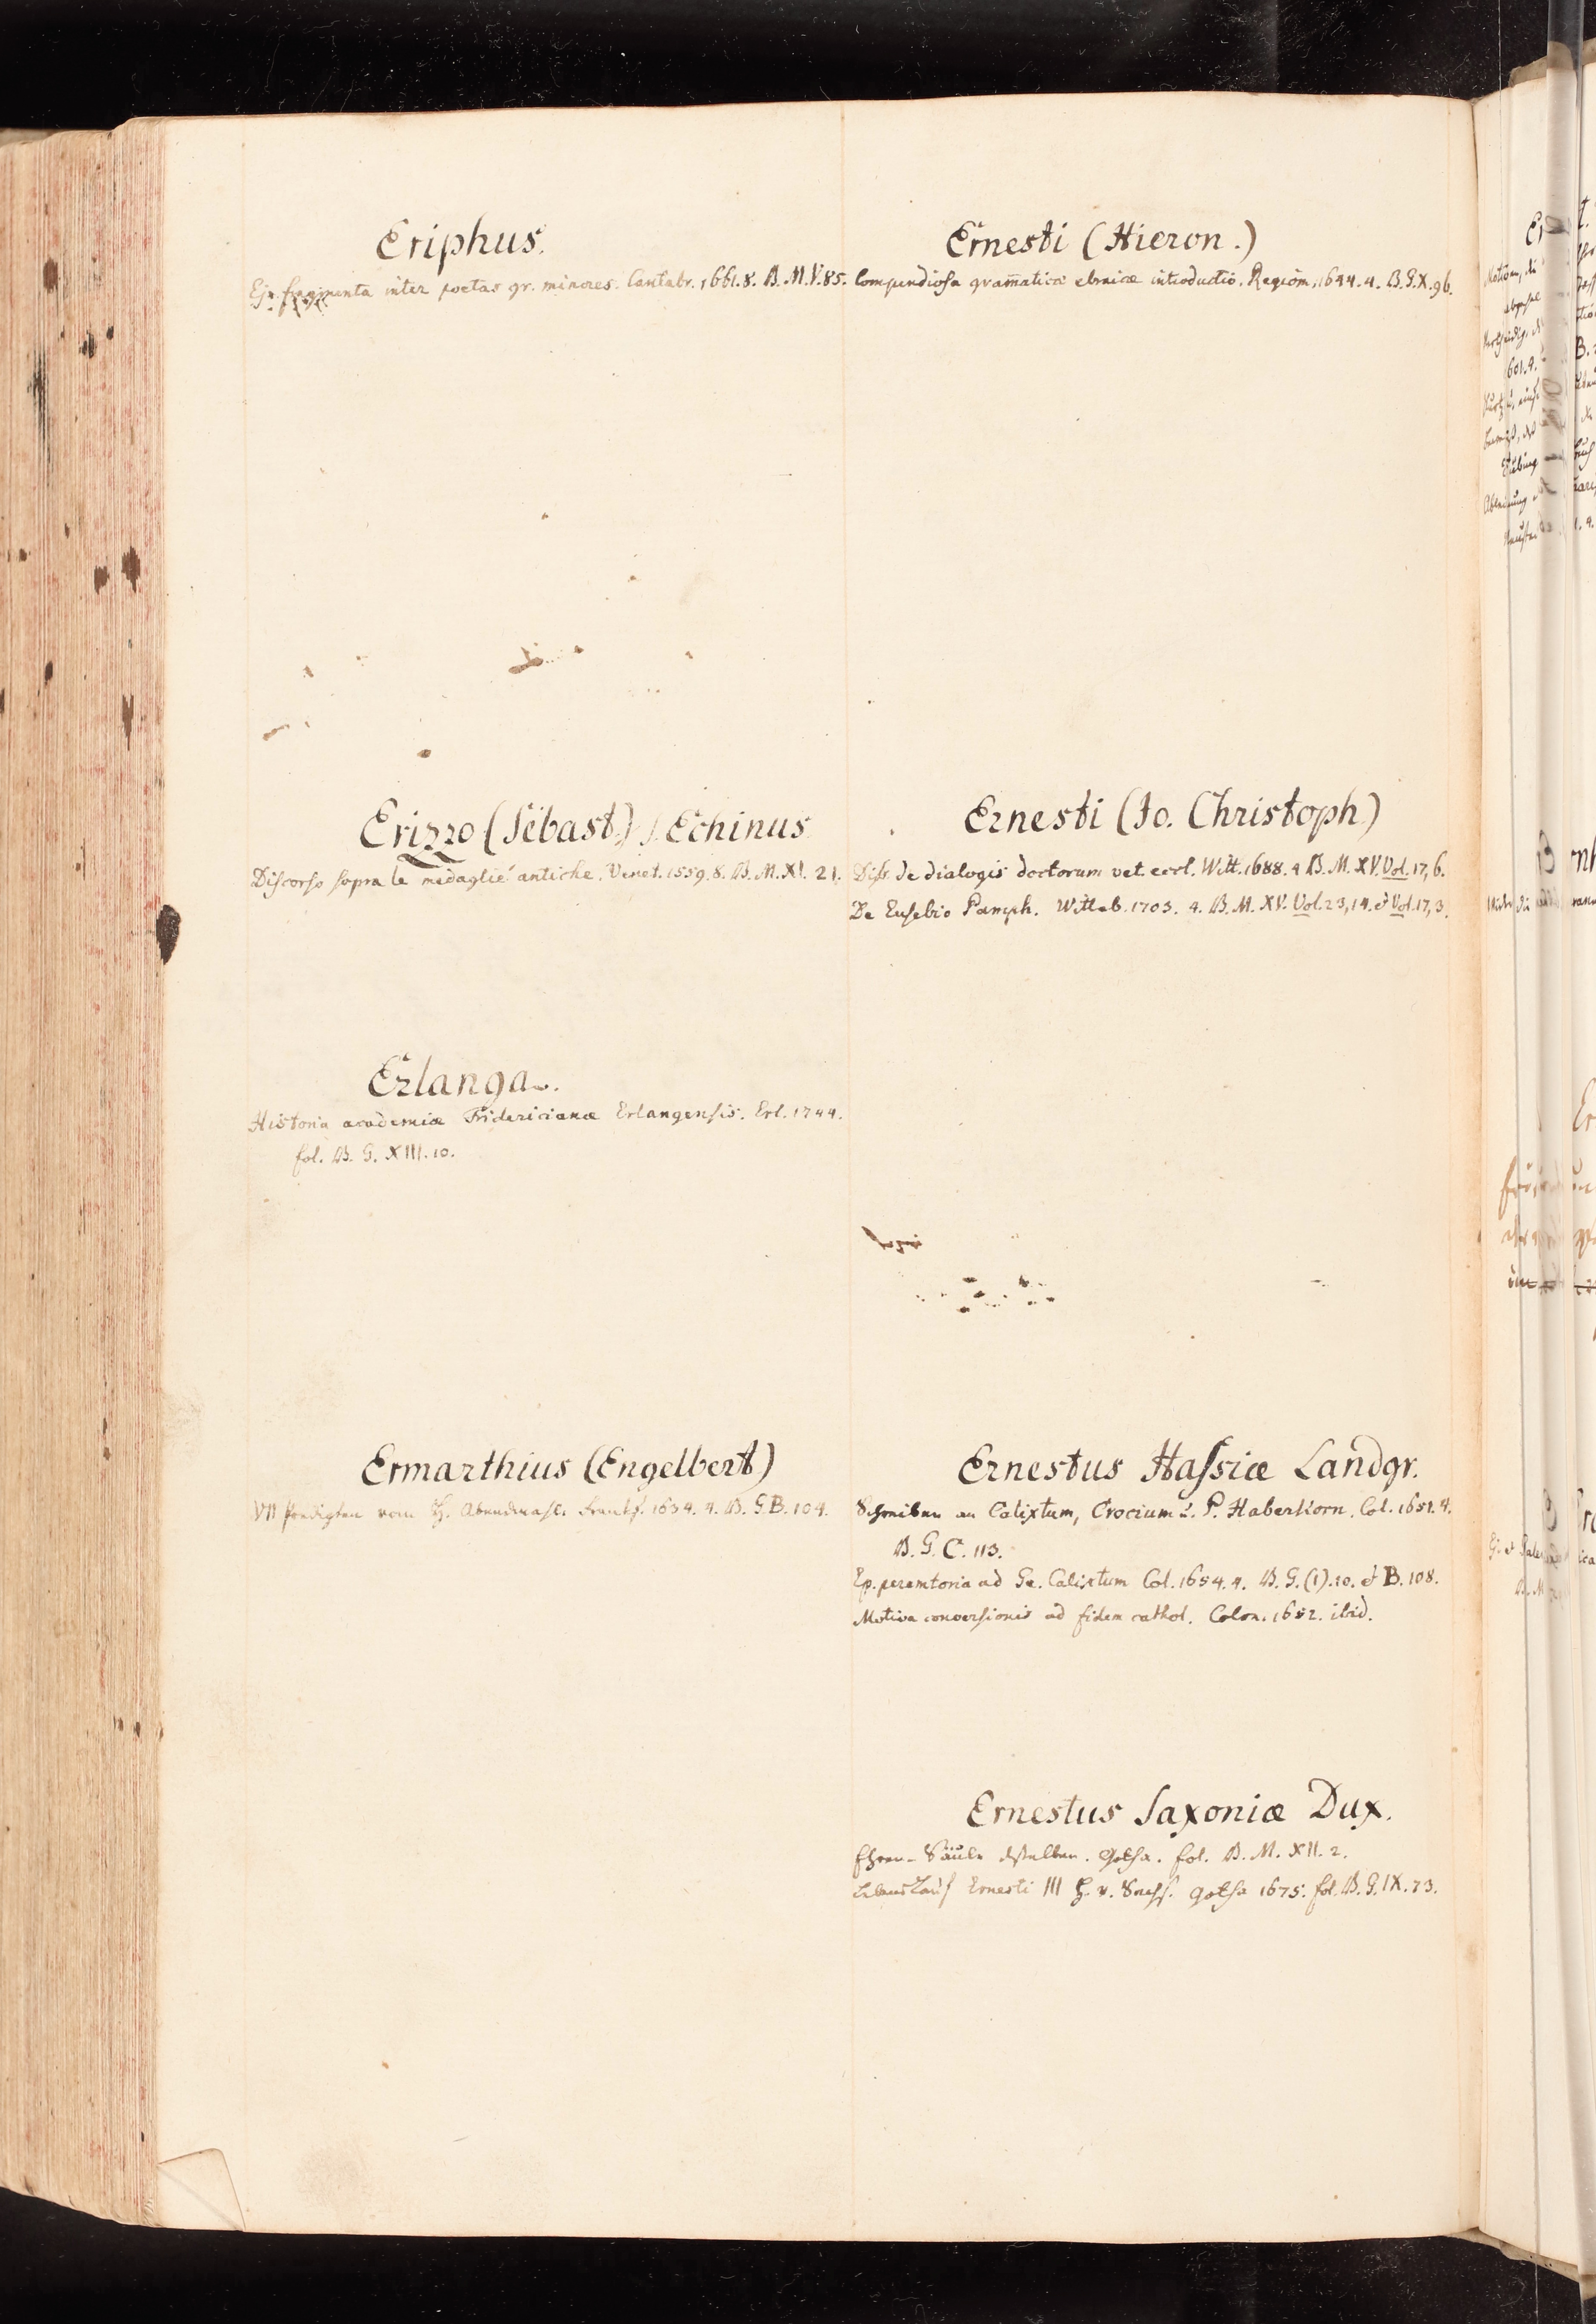 Eriphus.
Ej. fragmenta inter poetas gr. minores. Cantabr. 1661. 8. B. M. V. 85.
Erizzo (Sebast.) s. Echinus
Discorso sopra le medaglie antiche. Venet. 1559. 8. B. M. XI. 21.
Erlanga.
Historia academiæ Fridericianæ Erlangensis. Erl. 1744.
fol. B. G. XIII. 10.
Ermarthius (Engelbert)
VII Predigten vom H. Abendmahl. Franckf. 1634. 4. B. G. B. 104.
Ernesti (Hieron.)
Compendiosa grammaticæ ebraicæ introductio. Regiom. 1644. 4. B. G. X. 96.
Ernesti (Jo. Christoph)
Diss. de dialogis doctorum vet. eccl. Witt. 1688. 4 B. M. XV. Vol. 17, 6.
De Eusebio Pamph. Witteb. 1703. 4. B. M. XV. Vol. 23, 14. & Vol. 17, 3.
Ernestus Hassiæ Landgr.
Schreiben an Calixtum, Crocium u. P. Haberkorn. Col. 1651. 4.
B. G. C. 113.
Ep. peremtoria ad Ge. Calixtum Col. 1654. 4. B. G. (1). 10. & B. 108.
Motiva conversionis ad fidem cathol. Colon. 1652. ibid.
Ernestus Saxoniæ Dux.
Ehren-Säule desselben. Gotha. fol. B. M. XII. 2.
LebensLauf Ernesti III H. v. Sachs. Gotha 1675. fol. B. G. IX. 73.